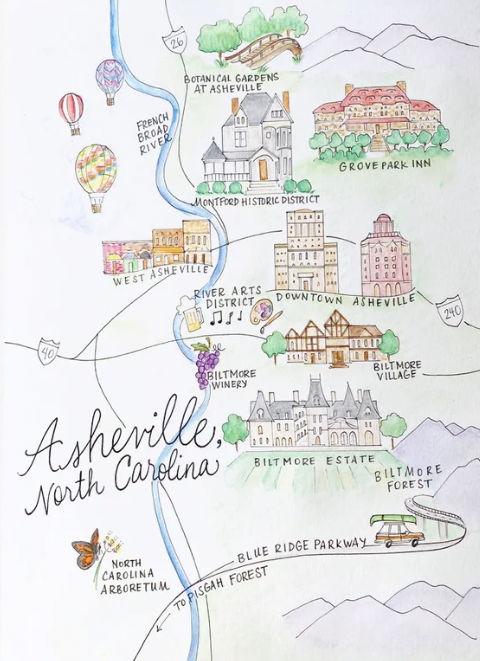 26
BOTANICAL GARDENS
AT ASHEVILLE
FRENCH
BROAD
RIVER
GROVE PARK INN
MONTFORD HISTORIC DISTRICT
WEST ASHEVILLE
RIVER ARTS
DISTRICT
DOWNTOWN ASHEVILLE
240
40
BILTMORE
WINERY
BILTMORE
VILLAGE
Asheville,
North Carolina
BILTMORE ESTATE
BILTMORE
FOREST
BLUE RIDGE PARKWAY
NORTH
CAROLINA
ARBORETUM
TO PISGAH FOREST